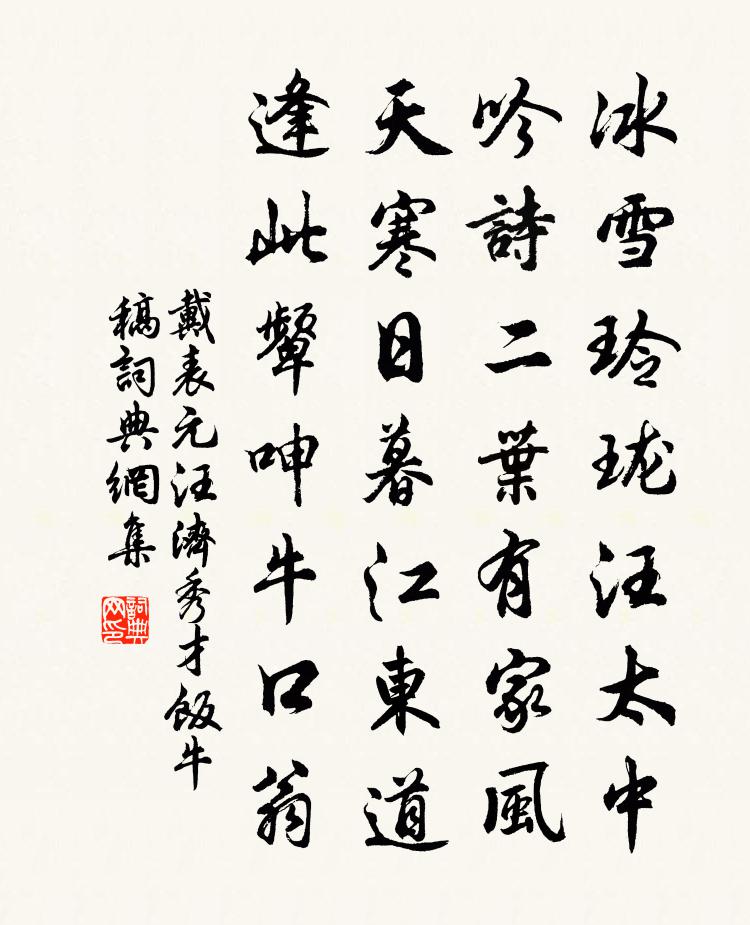 冰雪玲瓏汪太中
吟詩二葉有家風
天寒日暮江東道
逢此顰呻牛口翁
戴表元汪濟秀才飯牛
稿詞典網集
詞典网印